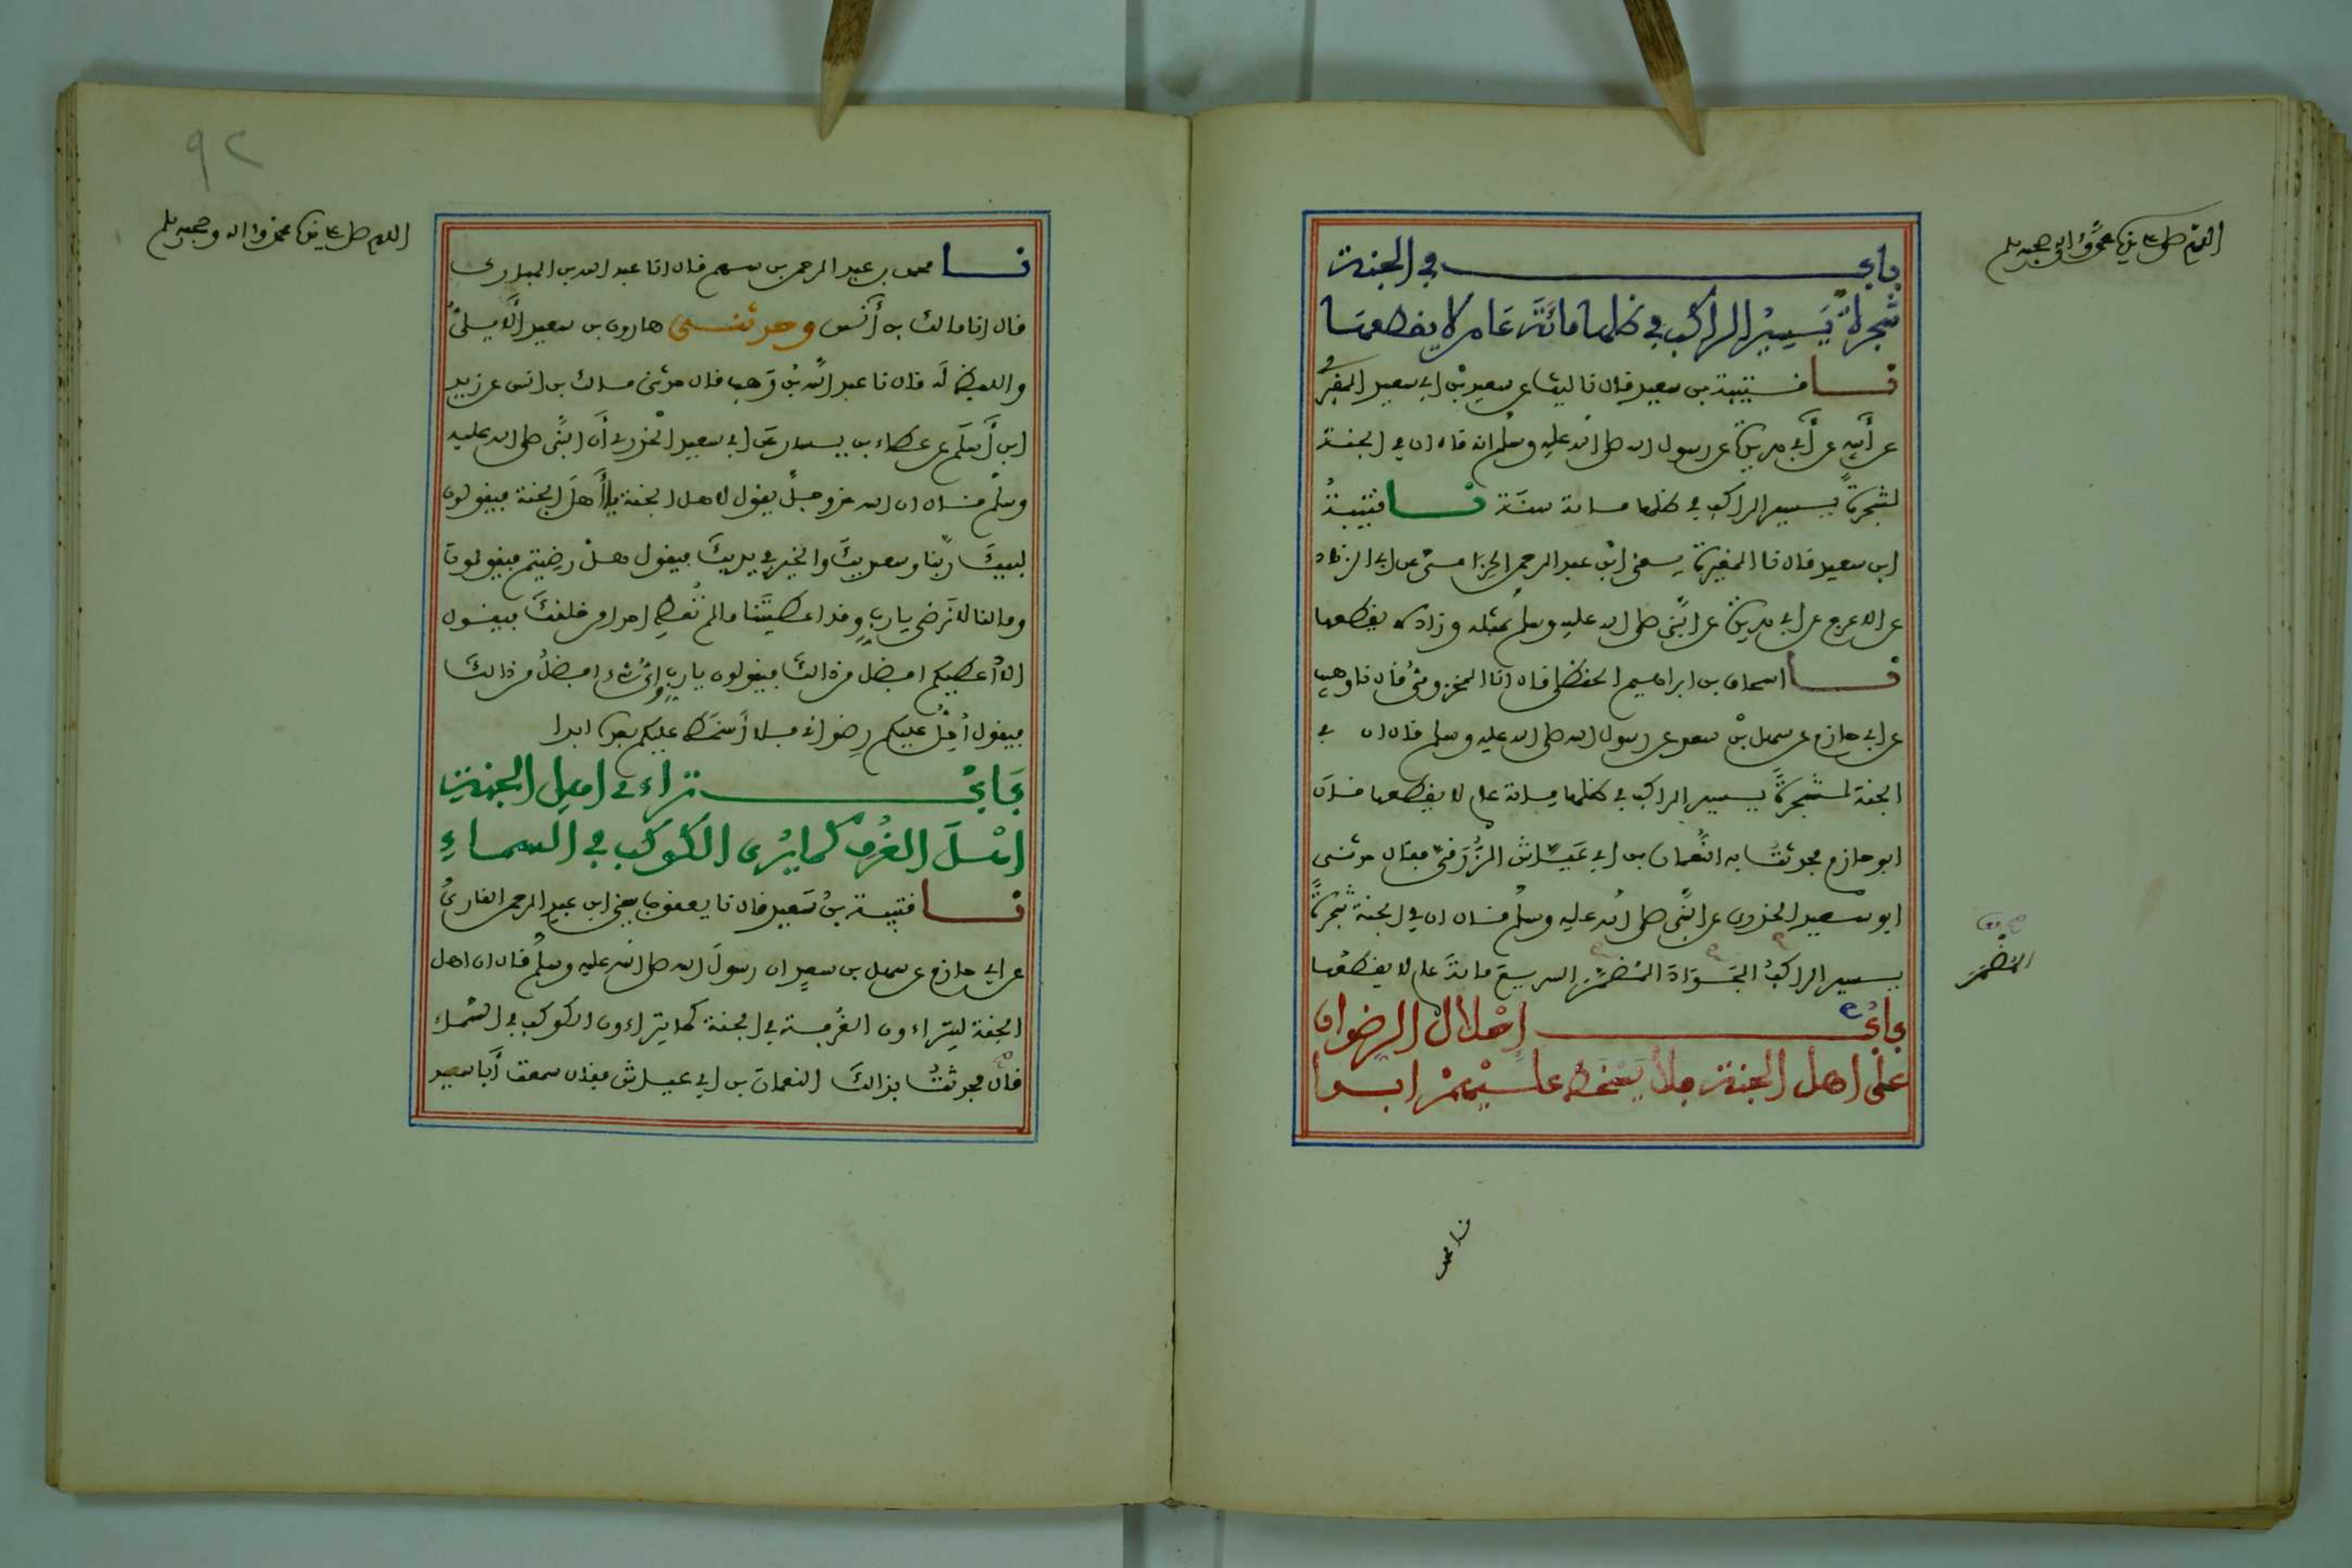 اللهم صل على سيدنا محمد وآله وصحبه وسلم
باب في الجنة
شجرة يَسِيرُ الراكب في ظلها مائة عام لا يقطعها
نا قتيبة بن سعيد قال نا ليث عن سعيد بن أبي سعيد المقبري
عن أبيه عن أبي هريرة عن رسول الله صلى الله عليه وسلم انه قال ان في الجنة
لشجرة يسير الراكب في ظلها مائة سنة نا قتيبة
ابن سعيد قال نا المغيرة يعني ابن عبد الرحمن الحزامي عن ابي الزناد
عن الاعرج عن ابي هريرة عن النبي صلى الله عليه وسلم بمثله وزاد لا يقطعها
نا اسحاق بن ابراهيم الحنظلي قال انا المخزومي قال نا وهيب
عن ابي حازم عن سهل بن سعد عن رسول الله صلى الله عليه وسلم قال ان في
الجنة لشجرة يسير الراكب في ظلها مائة عام لا يقطعها قال
ابو حازم فحدثت به النعمان بن ابي عياش الزرقي فقال حدثني
ابو سعيد الخدري عن النبي صلى الله عليه وسلم قال ان في الجنة شجرة
يسير الراكب الجواد المضمر السريع مائة عام لا يقطعها
المضمر
باب إحلال الرضوان
على اهل الجنة فلا يسخط عليهم ابدا
نا محمد
٩٢
اللهم صل على سيدنا محمد وآله وصحبه وسلم
نا محمد بن عبد الرحمن بن سهم قال انا عبد الله بن المبارك
قال انا مالك بن أنس وحدثني هارون بن سعيد الأيلي
واللفظ له قال نا عبد الله بن وهب قال حدثني مالك بن انس عن زيد
ابن أسلم عن عطاء بن يسار عن ابي سعيد الخدري أن النبي صلى الله عليه
وسلم قال ان الله عز وجل يقول لاهل الجنة يا أهل الجنة فيقولون
لبيك ربنا وسعديك والخير في يديك فيقول هل رضيتم فيقولون
وما لنا لا نرضى يا رب وقد اعطيتنا ما لم تعط احدا من خلقك فيقول
الا أعطيكم افضل من ذالك فيقولون يا رب وأي شيء افضل من ذالك
فيقول أحل عليكم رضواني فلا أسخط عليكم بعده ابدا
باب تراءي اهل الجنة
اهل الغرف كما يرى الكوكب في السماء
نا قتيبة بن سعيد قال نا يعقوب يعني ابن عبد الرحمن القاري
عن ابي حازم عن سهل بن سعد ان رسول الله صلى الله عليه وسلم قال ان اهل
الجنة ليتراءون الغرفة في الجنة كما يتراءون الكوكب في السماء
قال فحدثت بذالك النعمان بن ابي عياش فقال سمعت أبا سعيد